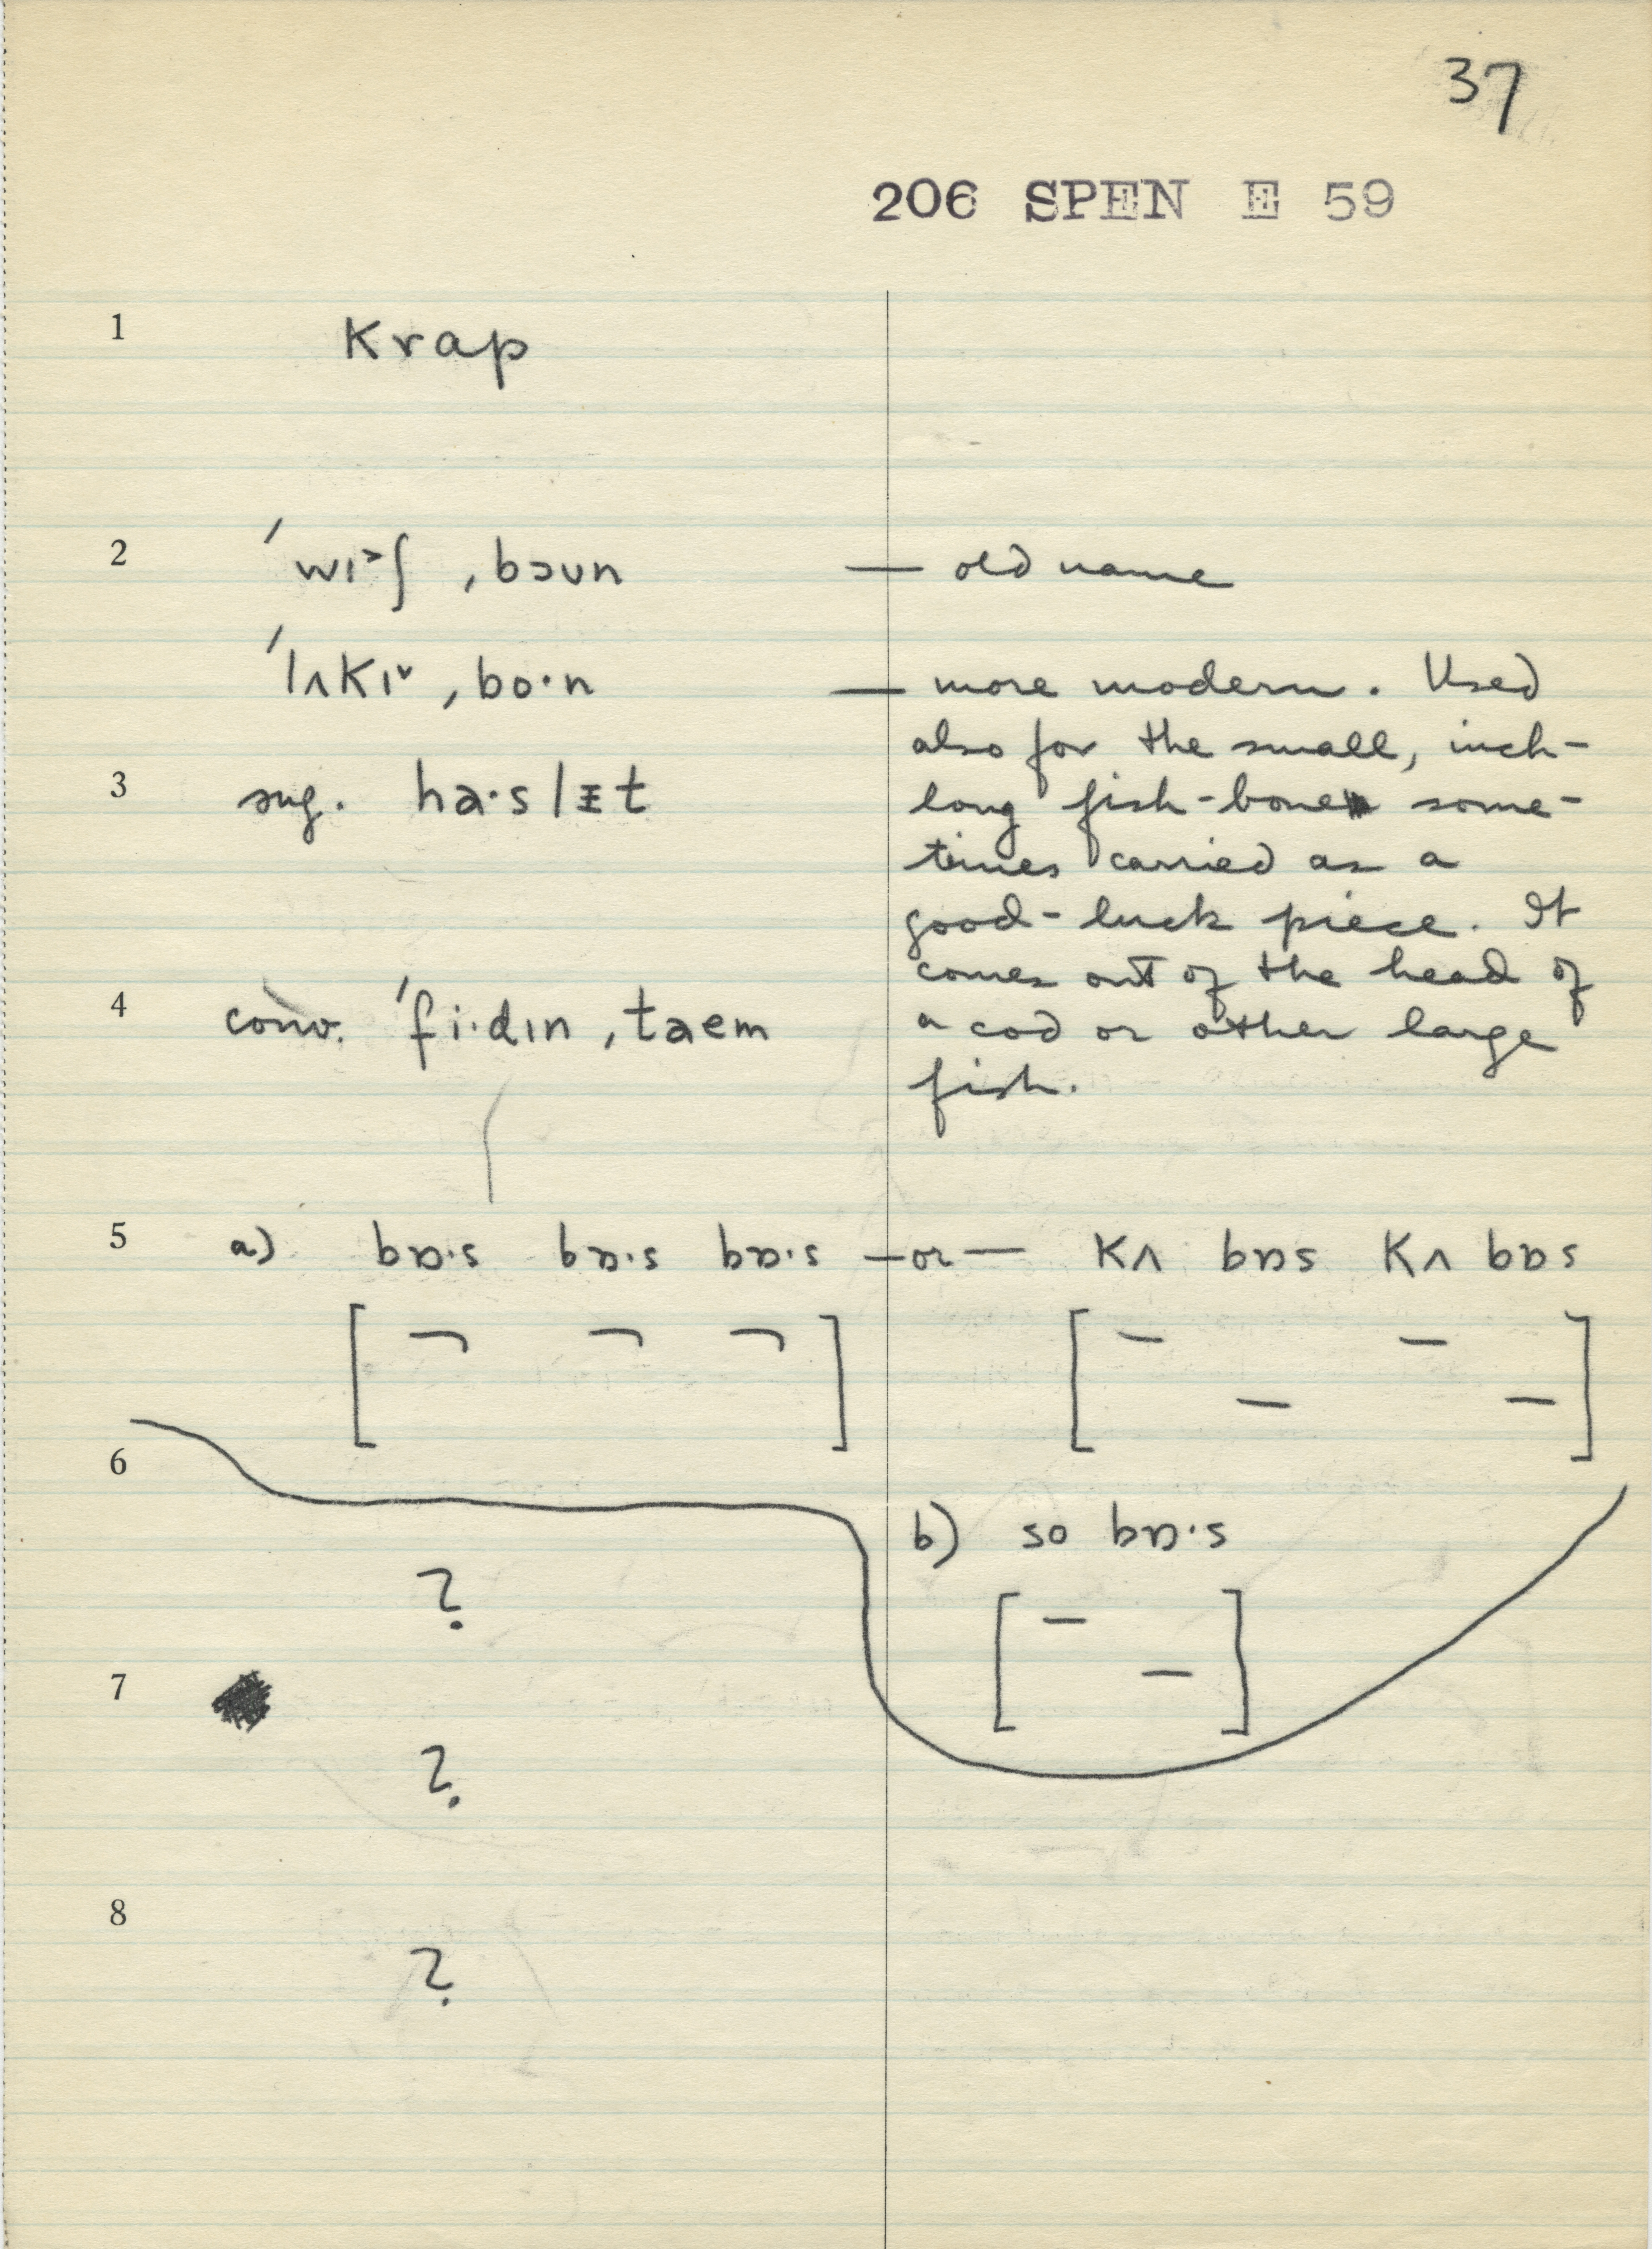 37
206 SPEN E 59
1 krap
2 ˈwɪ˃ʃ ˌbɔun — old name
ˈlʌkɪˇ ˌbo·n — more modern. Used
also for the small, inch-
3 sug. ha·slᵻt long fish-bone some-
times carried as a
good-luck piece. It
comes out of the head of
4 conv. ˈfi·dɪn ˌtaem a cod or other large
fish.
5 a) bɒ·s bɒ·s bɒ·s — or — kʌ bɒs kʌ bɒs
[ ¬ ¬ ¬ ] [ – _ – _ ]
6
b) so bɒ·s
? [ – _ ]
7
?
8
?